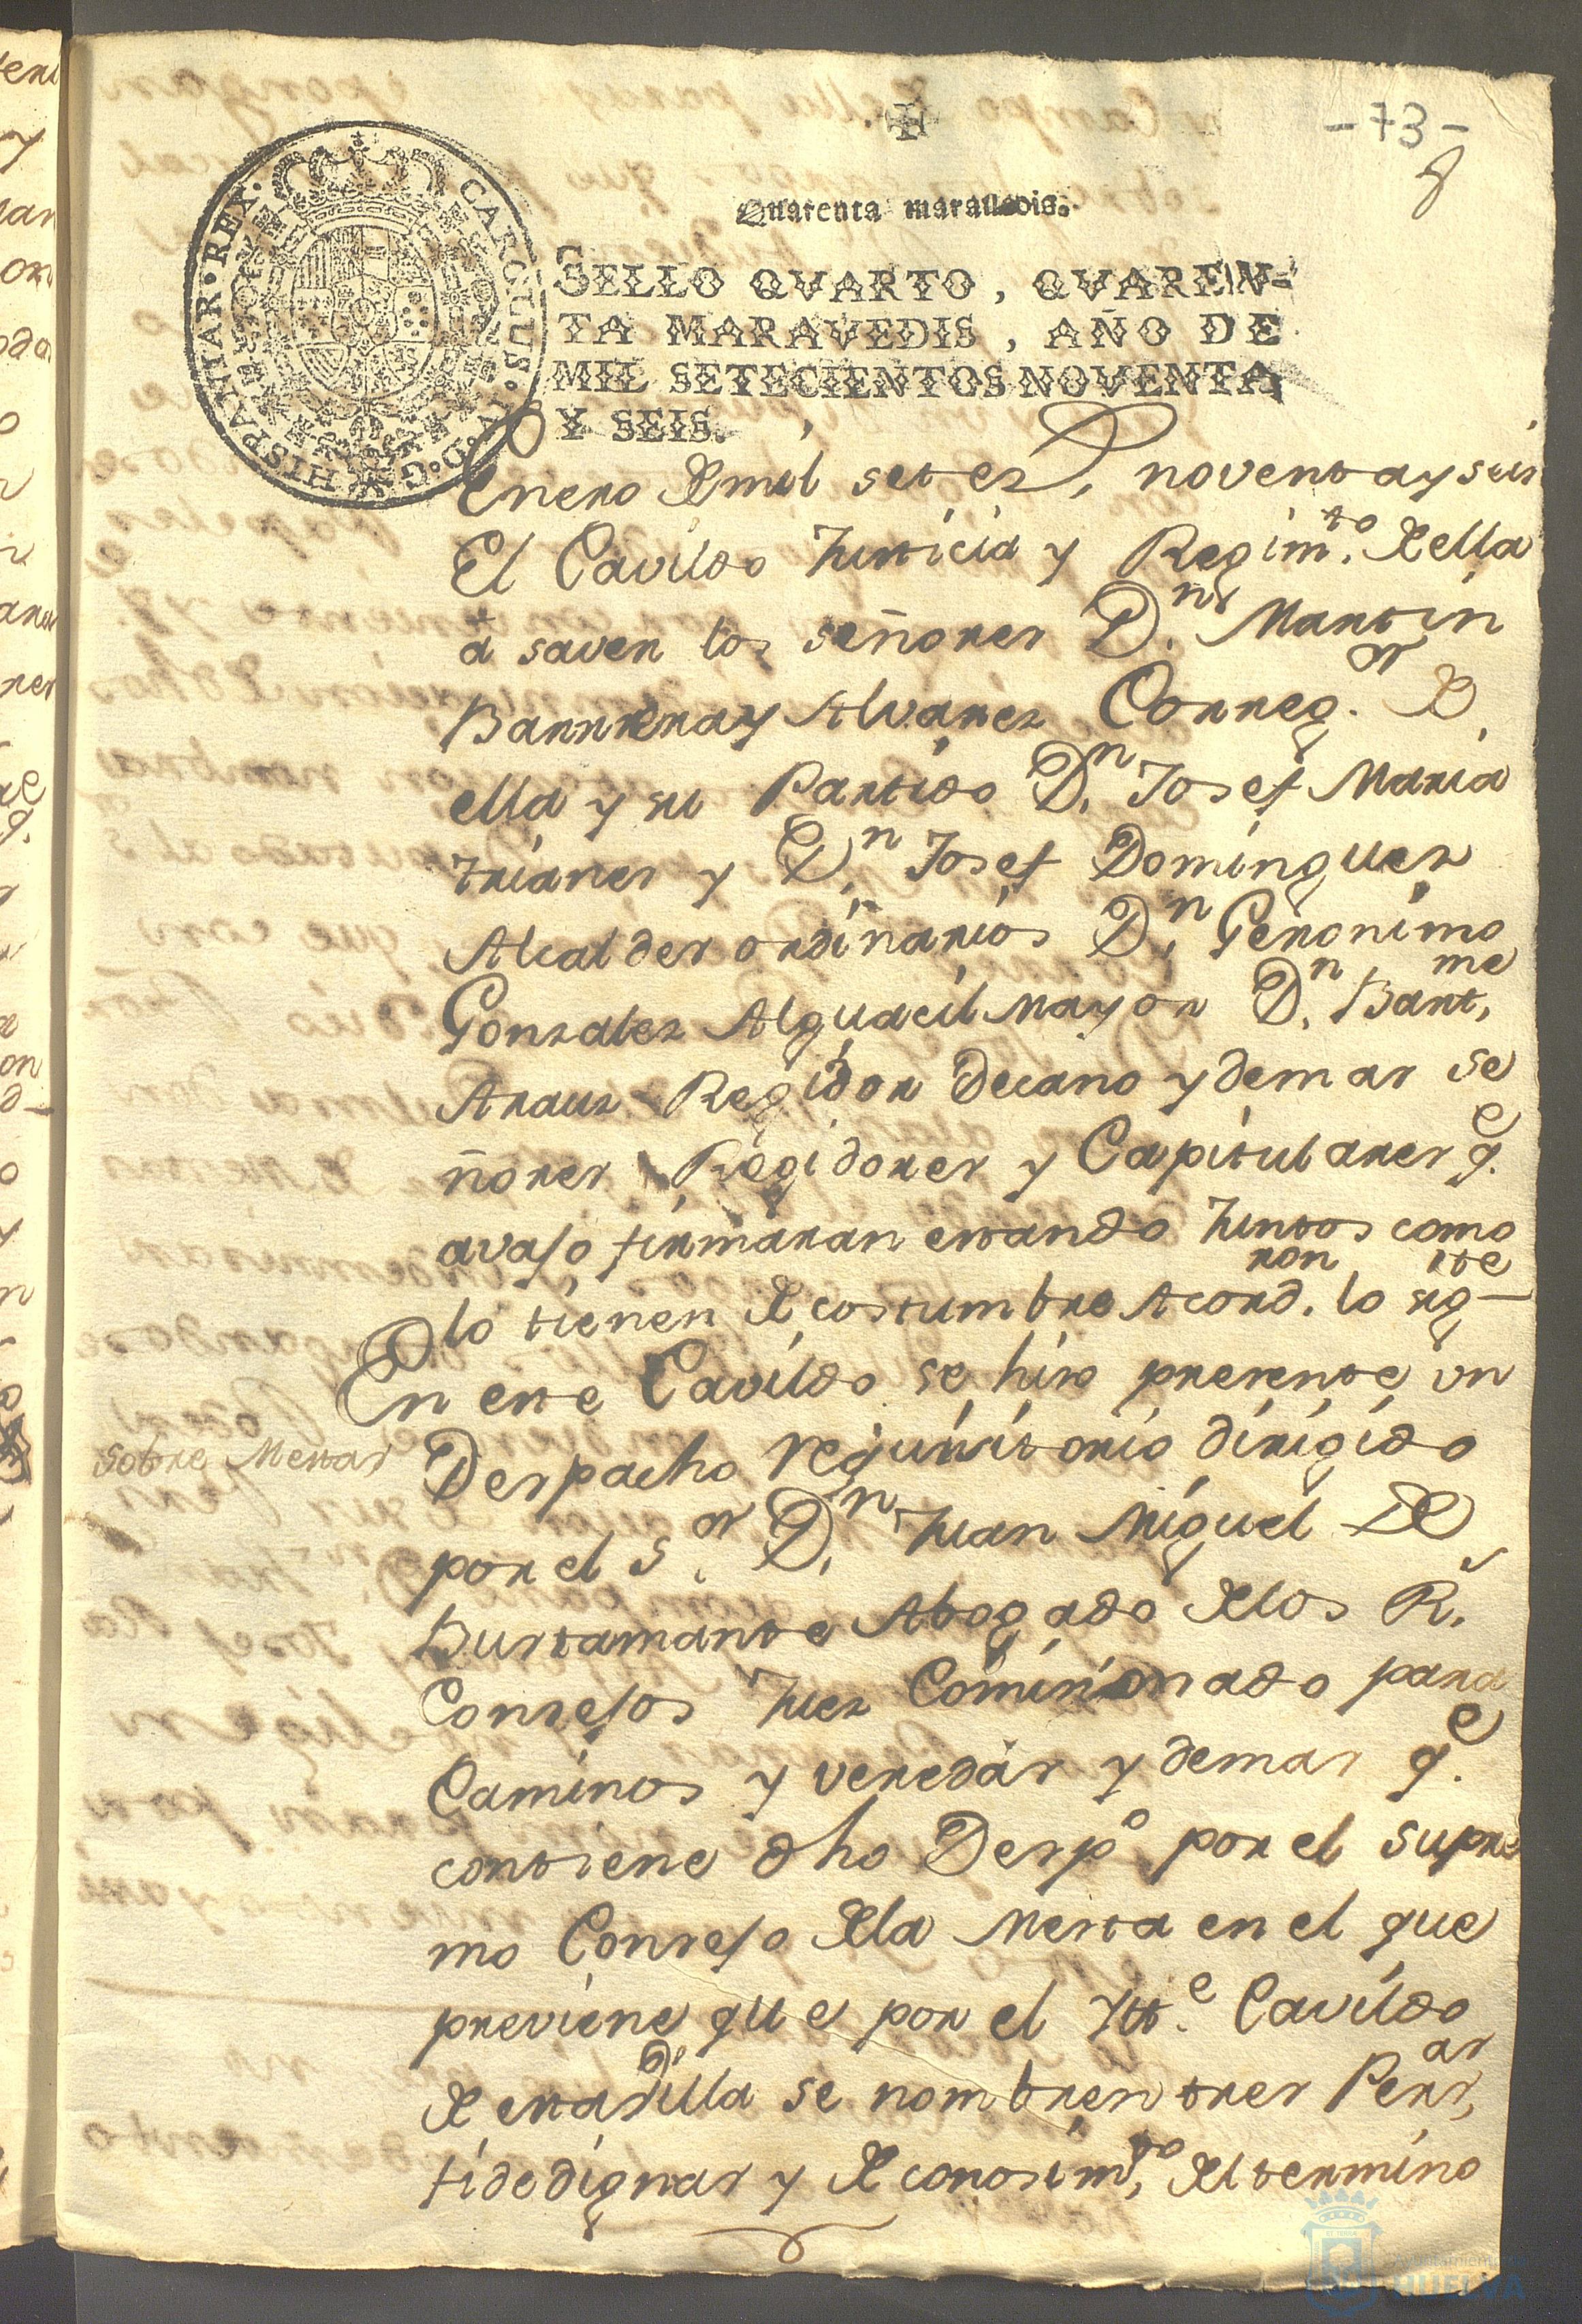 -73-
Quarenta maravedis.
SELLO QVARTO, QVAREN-
TA MARAVEDIS, AÑO DE
MIL SETECIENTOS NOVENTA
Y SEIS.
CAROLUS·IV·D·G· HISPANIAR·REX·
Enero De mil setez.s noventa y seis
El Cavildo Justicia y Regim.to De ella
a saver los señores D.ns Martin
Barrrera y Alvares Correg.or D
ella y su Partido D.n Josef Maria
Trianes y D.n Josef Dominguez
Alcaldes ordinarios D.n Geronimo
Gonzales Alguacil mayor D.n Bart.me
Arauz Regidor Decano y demas se
ñores Regidores y Capitulares q.e
avajo firmaran estando Juntos como
lo tienen De costumbre Acord.ron lo sig.ite
En este Cavildo se hiso presente un
Sobre Mestas
Despacho requisitorio dirigido
por el S.or D.n Juan Miguel De
Bustamante Abogado De los R.s
Consejos Juez Comisionado para
Caminos y veredas y demas q.e
contiene dho Desp.o por el supre
mo Consejo De la Mesta en el que
previene que por el Ytt.e Cavildo
De esta villa se nombren tres Pers.as
fidedignas y De conosim.to Del termino
Ayuntamiento de
HUELVA